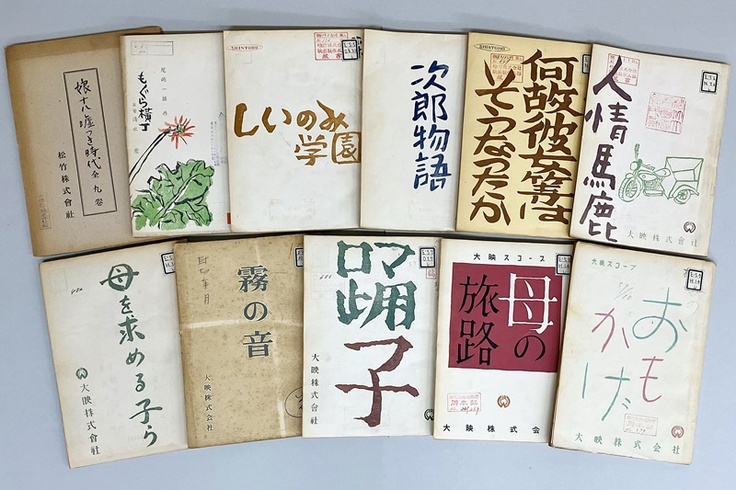 娘十八嘘つき時代 全九巻
松竹株式會社
もぐら横丁
SHINTOHO
しいのみ
学園
次郎物語
SHINTOHO
何故彼女等は
そうなったか
人情馬鹿
大映株式會社
母を求める子ら
大映株式會社
霧の音
大映株式會社
踊子
大映株式會社
大映スコープ
母の
旅路
大映株式会社
大映スコープ
おも
かげ
大映株式會社